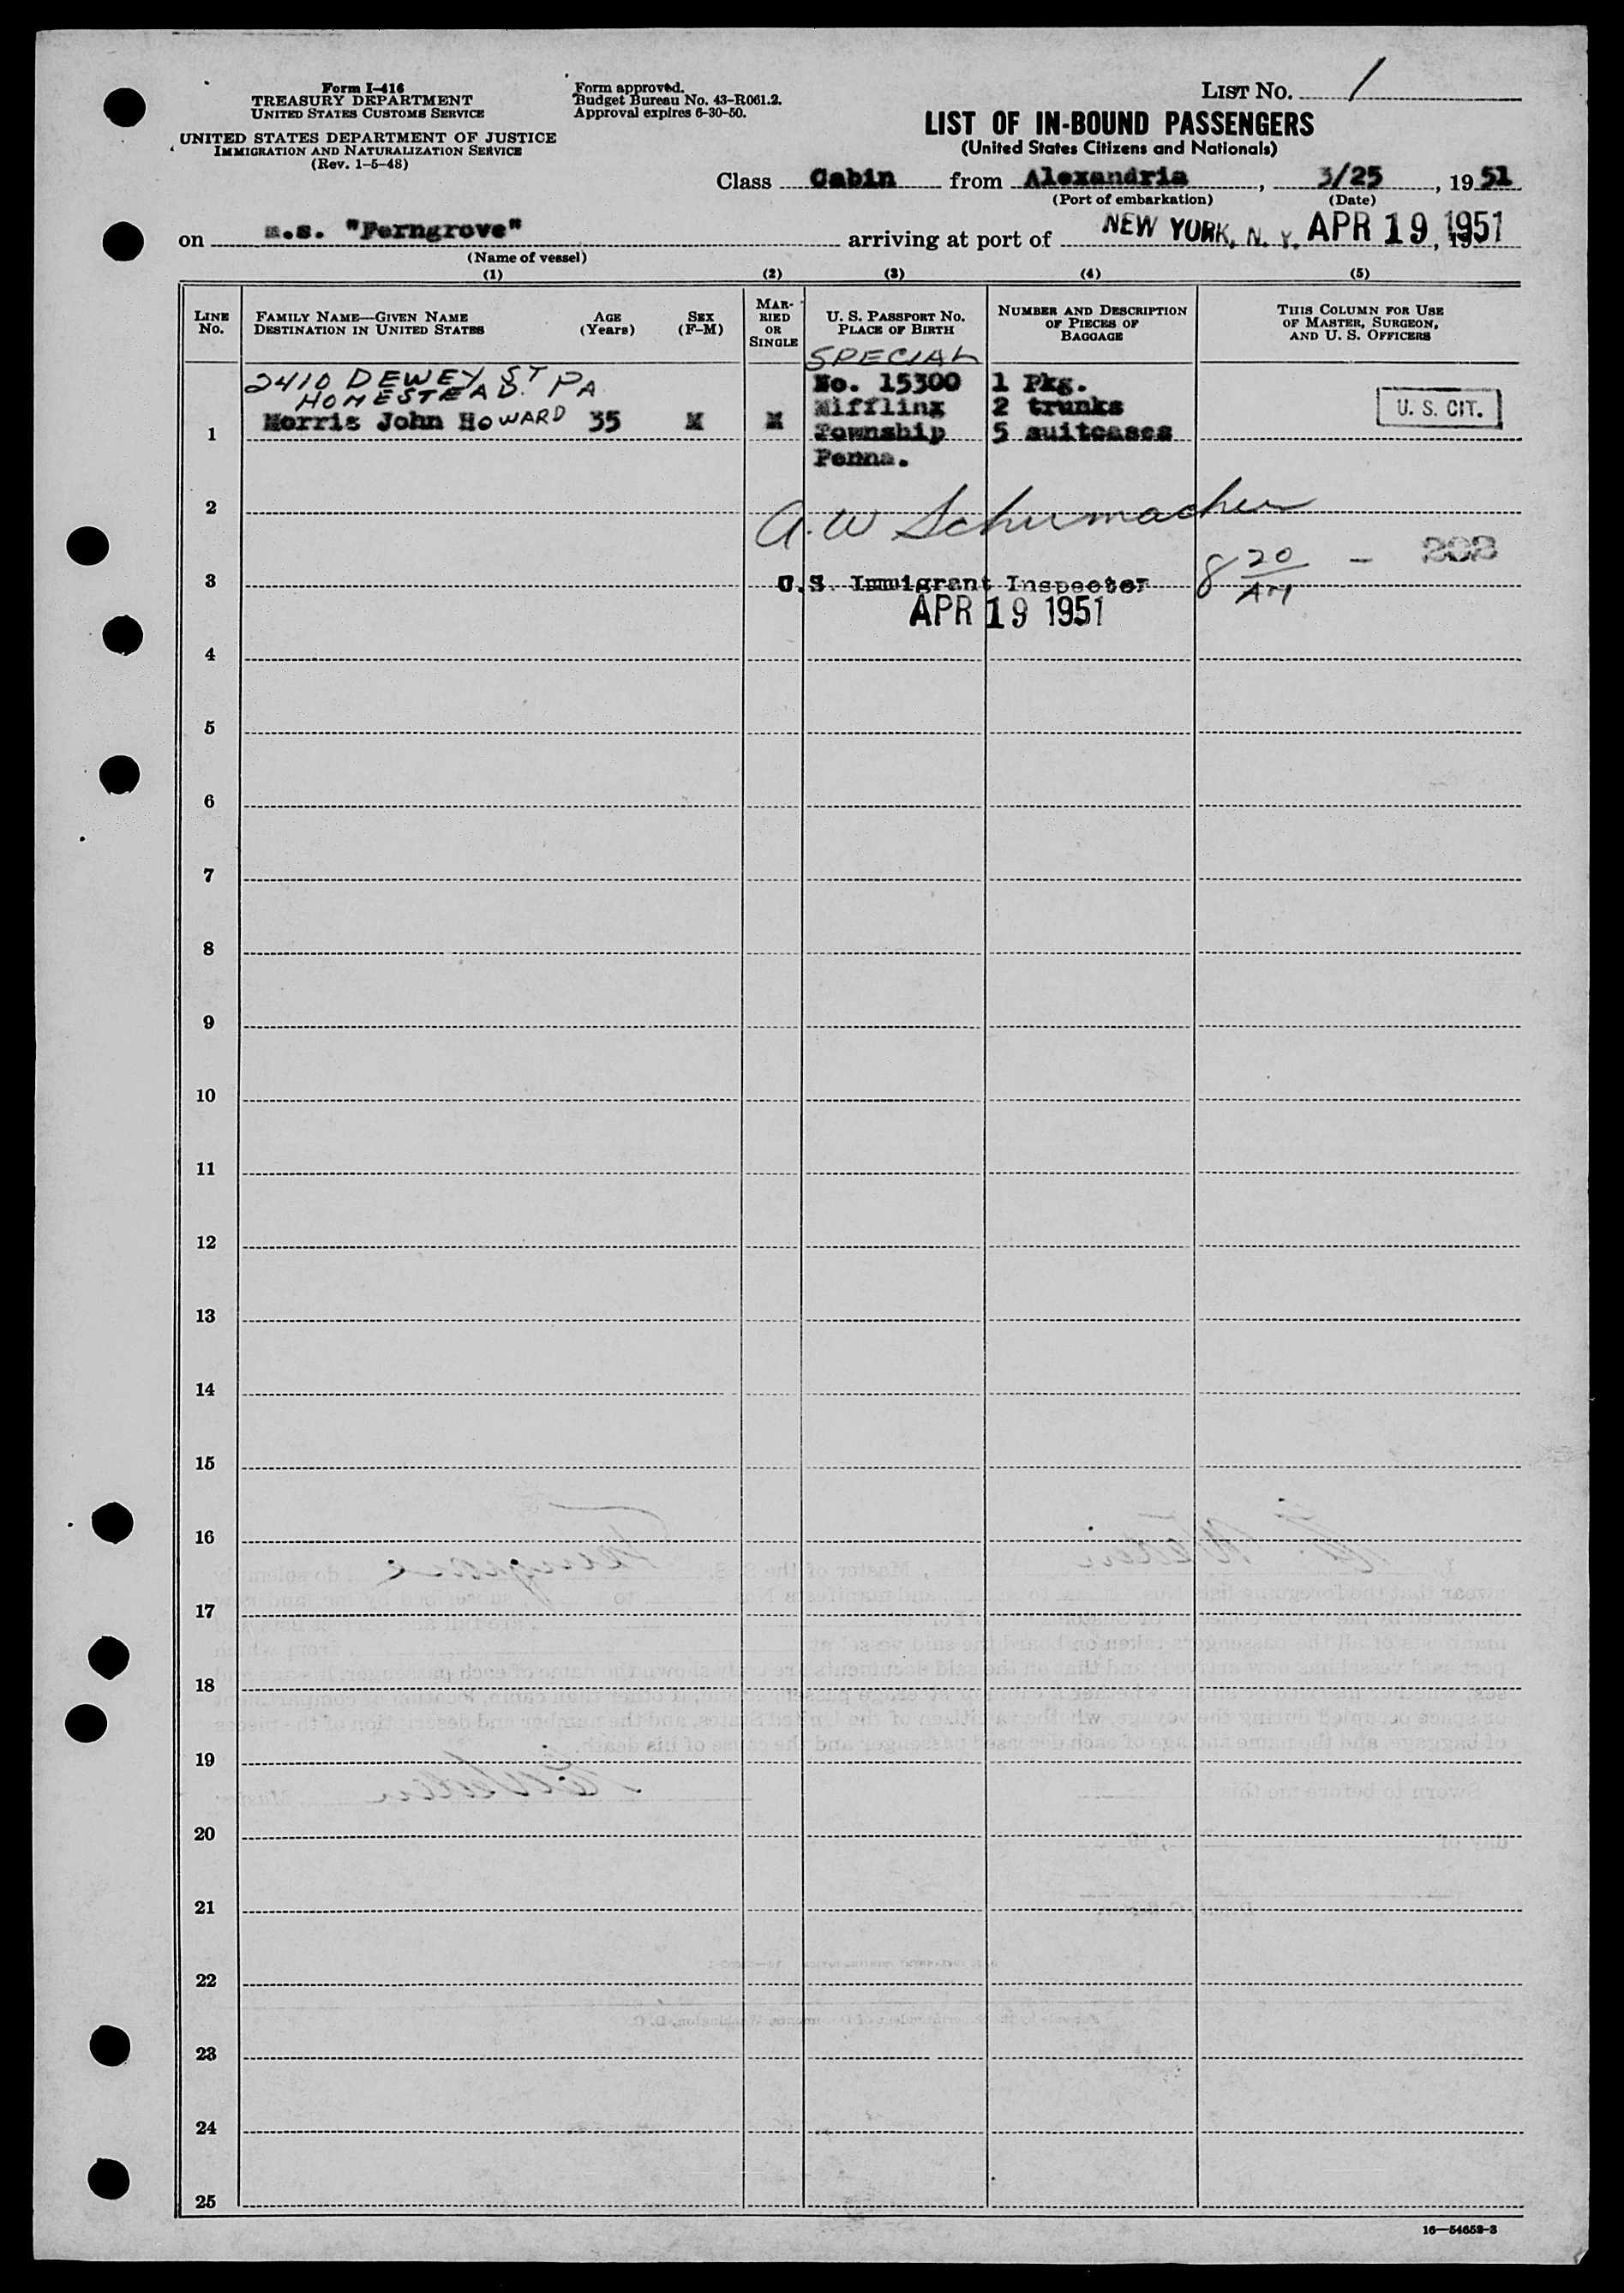 Form I-416
TREASURY DEPARTMENT
UNITED STATES CUSTOMS SERVICE
UNITED STATES DEPARTMENT OF JUSTICE
IMMIGRATION AND NATURALIZATION SERVICE
(Rev. 1-5-48)
Form approved.
Budget Bureau No. 43-R061.2.
Approval expires 6-30-50.
LIST No. 1
LIST OF IN-BOUND PASSENGERS
(United States Citizens and Nationals)
Class Cabin from Alexandria, 3/25, 19 51
(Port of embarkation) (Date)
on m.s. "Ferngrove" arriving at port of NEW YORK, N. Y. APR 19, 1951
(Name of vessel)
(1) (2) (3) (4) (5)
LINE No.
FAMILY NAME—GIVEN NAME
DESTINATION IN UNITED STATES
AGE (Years)
SEX (F-M)
MARRIED OR SINGLE
U. S. PASSPORT No.
PLACE OF BIRTH
NUMBER AND DESCRIPTION
OF PIECES OF
BAGGAGE
THIS COLUMN FOR USE
OF MASTER, SURGEON,
AND U. S. OFFICERS
SPECIAL
2410 DEWEY ST PA
HOMESTEAD.
No. 15300 1 Pkg.
Mifflinx 2 trunks U. S. CIT.
1 Morris John HOWARD 35 M M Township 5 suitcases
Penna.
2 A. W Schumacher
8 20 AM -
3 U.S. Immigrant Inspector
APR 19 1951
4
5
6
7
8
9
10
11
12
13
14
15
16
17
18
19
20
21
22
23
24
25
16—54652-3